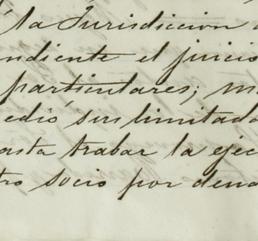 la Jurisdiccion
ndiente el juicio
particulares; m
edió sus limitada
asta trabar la ejec
tro socio por dena